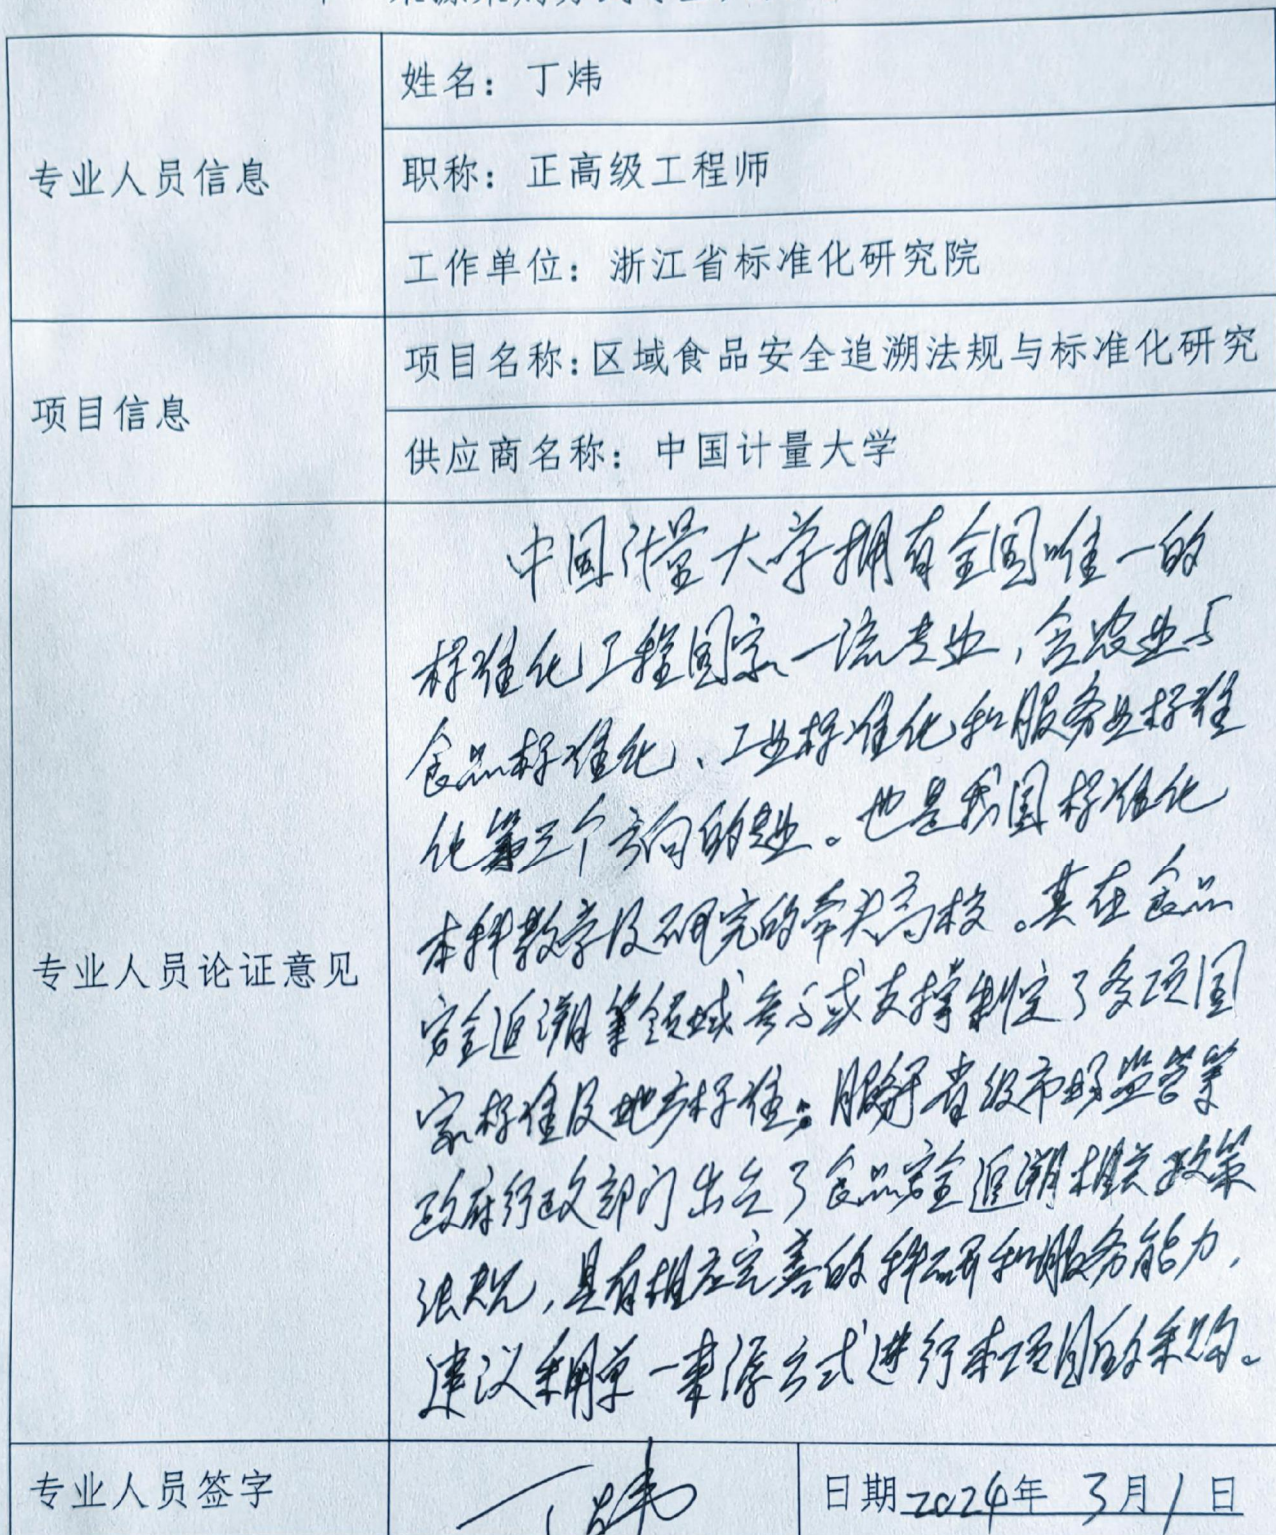 专业人员信息
姓名：丁炜
职称：正高级工程师
工作单位：浙江省标准化研究院
项目信息
项目名称：区域食品安全追溯法规与标准化研究
供应商名称：中国计量大学
专业人员论证意见
中国计量大学拥有全国唯一的
标准化工程国家一流专业，含农业与
食品标准化、工业标准化和服务业标准
化等三个方向的专业。也是我国标准化
本科教学及研究的牵头高校。其在食品
安全追溯等领域参与或支撑制定了多项国
家标准及地方标准。服务于省级市场监管等
政府行政部门出台了食品安全追溯相关政策
法规，具有相应完善的科研和服务能力，
建议采用单一来源方式进行本项目的采购。
专业人员签字
丁炜
日期 2024年 3月1日